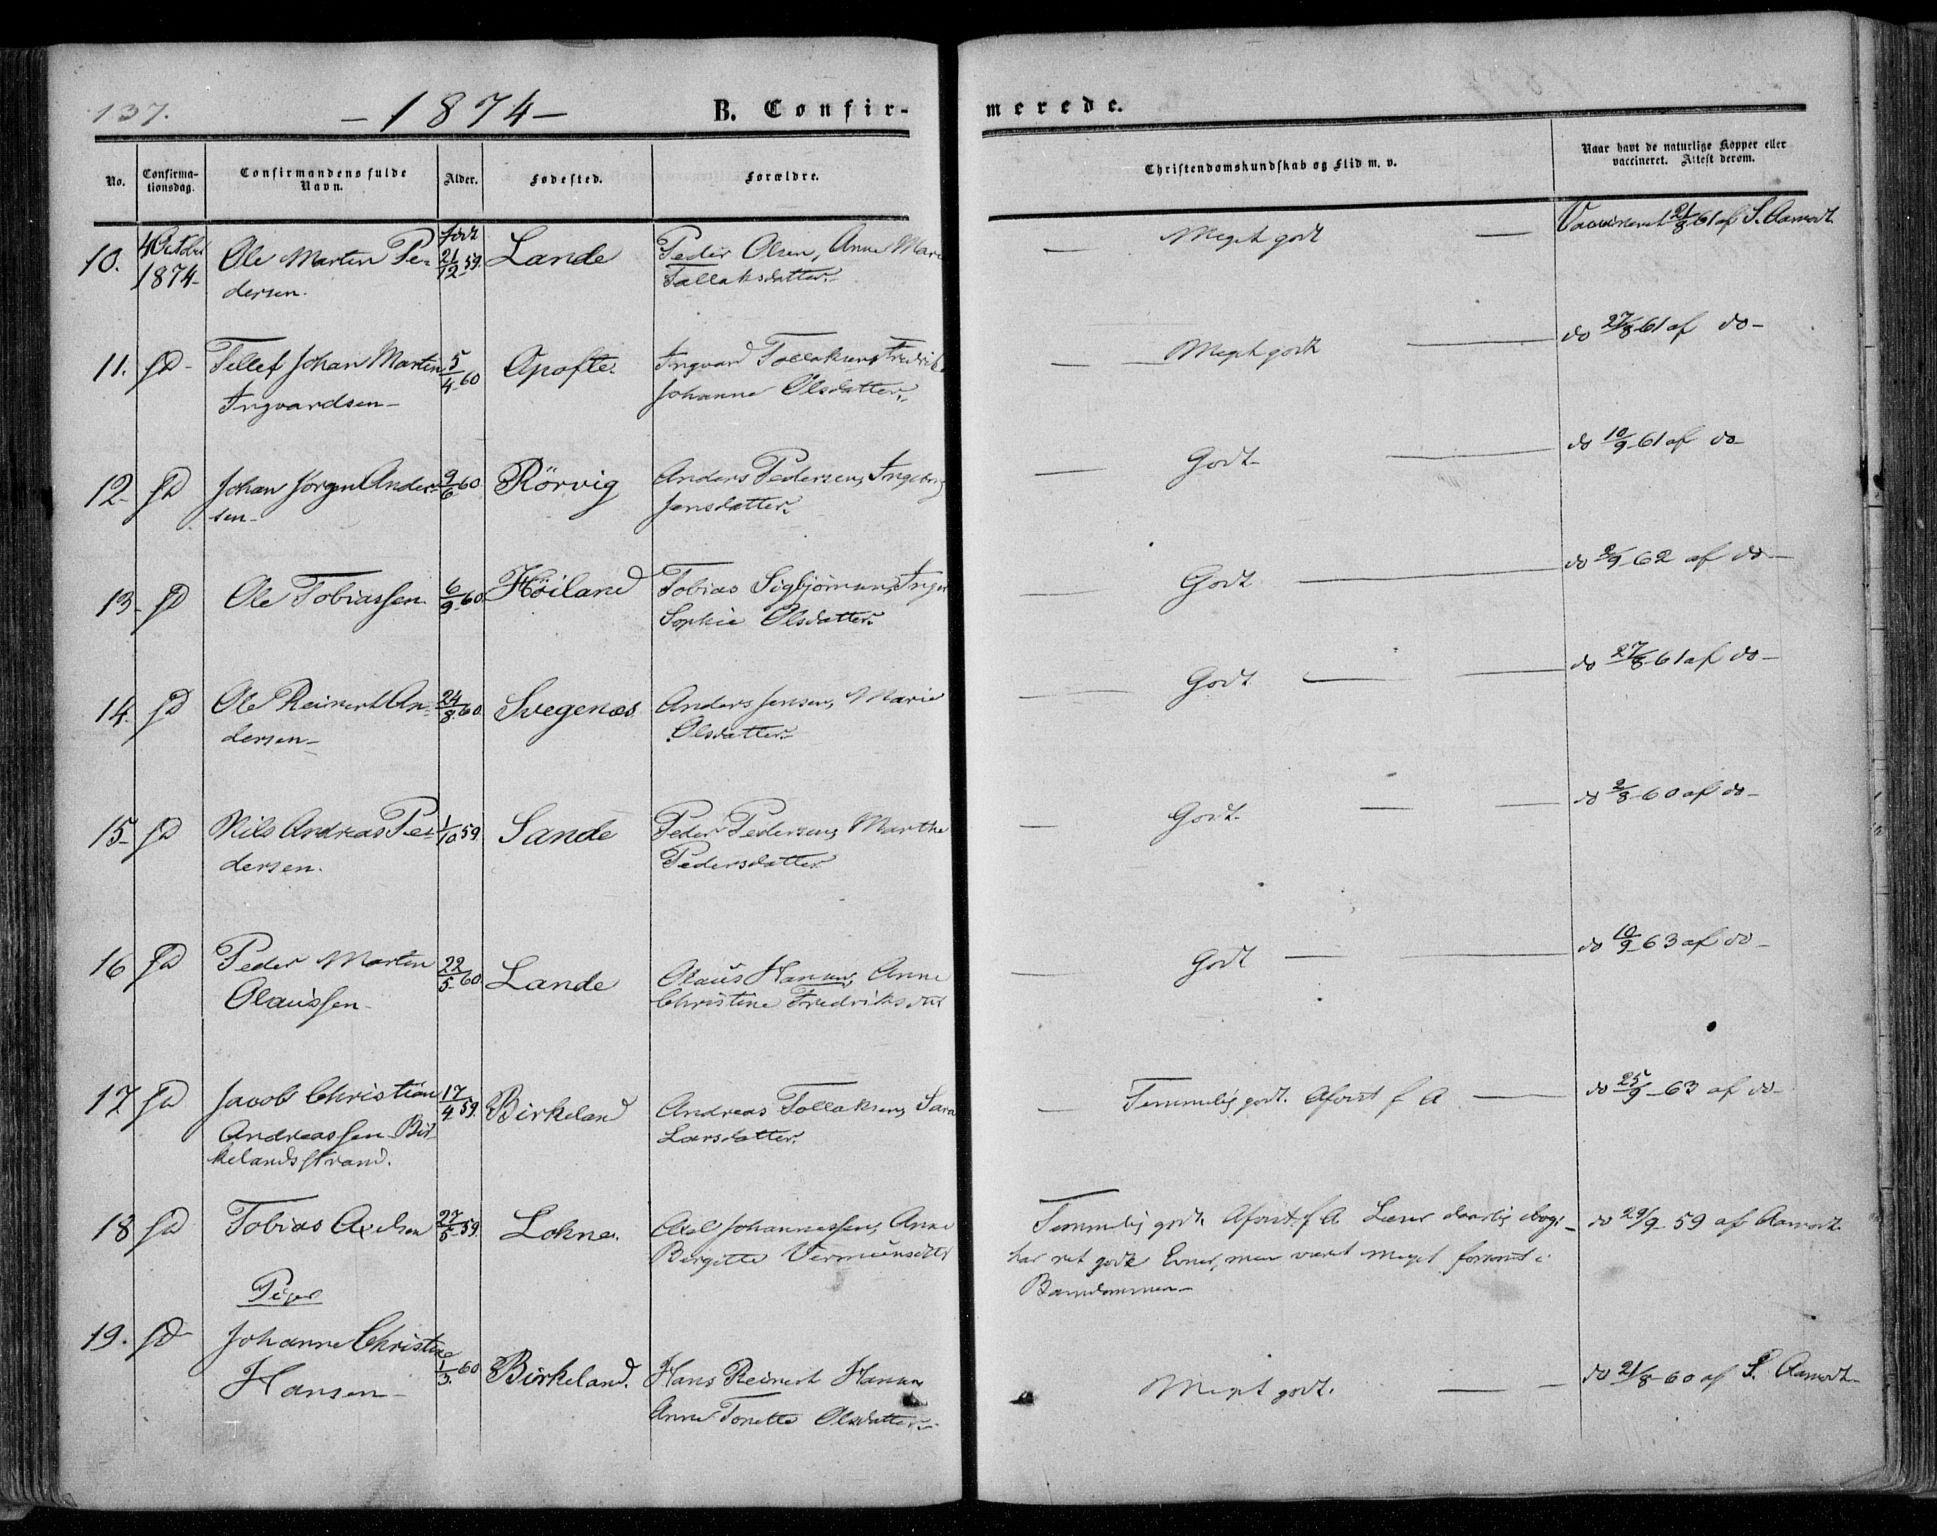 137.
- 1874 -
B. Confir-
merede.
No.
Confirma-
tionsdag.
Confirmandens fulde
Navn.
Alder.
Fødested.
Forældre.
Christendomskundskab og Flid m. v.
Naar havt de naturlige Kopper eller
vaccineret. Attest derom.
10. 4 Octobr 1874- Ole Martin Pe- født 21/12 59. Lande Peder Olsen, Anne Mari
dersen. Tallaksdatter.
— Meget godt — Vaccineret 21/8 61 af S. Aamodt
11. sD- Tellef Johan Martin 5/4 60 Apofte. Ingvard Tallaksens Fredrik
Ingvardsen- Johanne Olsdatter.
— Meget godt — do 27/8 61 af do-
12- sD Johan Jörgen Ander- 9/6 60 Rörvig Anders Pedersens Ingeborg
sen- Jensdatter.
— Godt- — do 10/9 61 af do
13- sD Ole Tobiassen 6/9 60 Höiland Tobias Sigbjörnsens Inger
Sophie Olsdatter.
— Godt — do 2/9 62 af do-
14. sD Ole Reinert An- 24/8 60 Svegenæs Anders Jensens Marie
dersen- Olsdatter-
— Godt — do 27/8 61 af do-
15- sD Nils Andreas Pe- 1/10 59. Sande Peder Pedersens Marthe
dersen. Pedersdatter
— Godt. — do 2/8 60 af do-
16 sD Peder Martin 22/5 60 Lande Olaus Hansens Anne
Olaussen- Christine Fredriksdtr
— Godt — do 10/9 63 af do-
17 sD Jacob Christian 17/4 59. Birkeland Andreas Tollaksens Sara
Andreassen Bir- Larsdatter.
kelandsstrand.
— Temmelig godt. Afvist f A — do 25/9 63 af do-
18 sD Tobias Axelsen 27/5 59. Lohne. Axel Johannessens Anne
Birgitte Vermunsdtr
Temmelig godt Afvist f A Læser daarlig i Bogi-
har ret gode Evner, men været meget forsømt i
Barndommen-
do 29/9 59 af Aamodt
Piger
19. sD Johanne Christine 1/3 60 Birkeland. Hans Reinert Hansen
Hansen- Anne Tonette Olsdatter-
Meget godt. — do 21/8 60 af S. Aamodt-